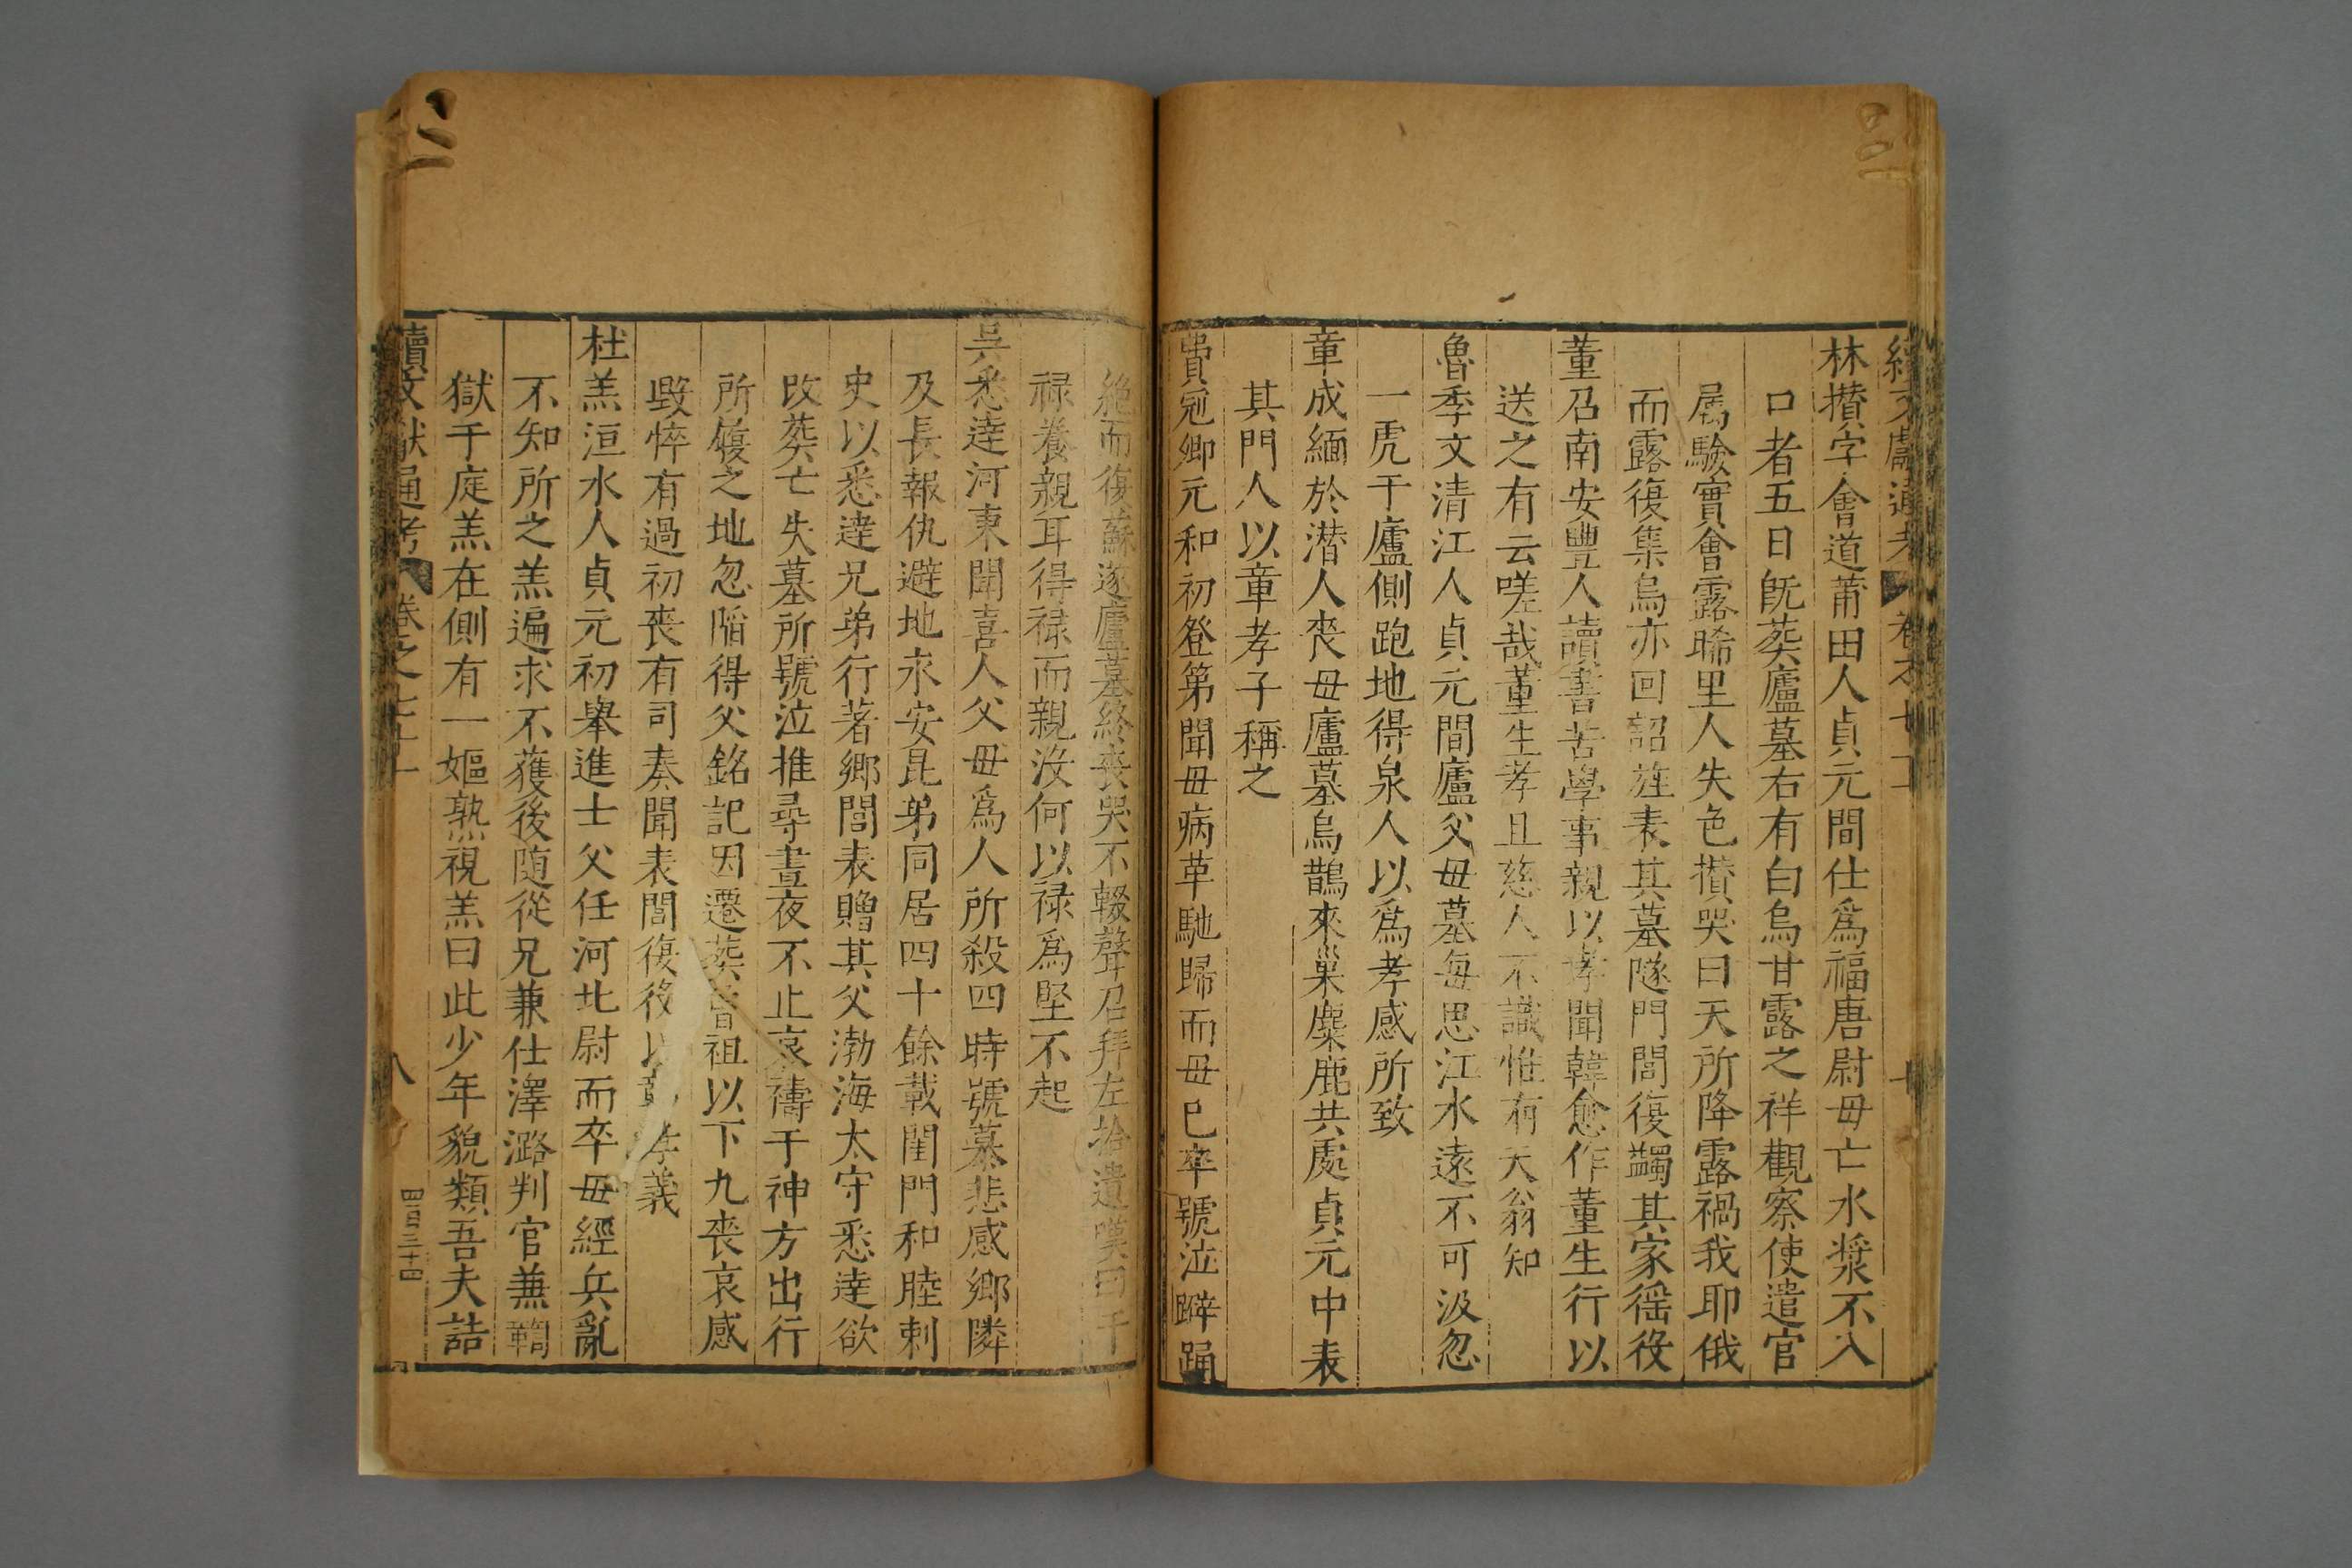 續文獻通考 卷之七十一
林攅字會道莆田人貞元間仕爲福唐尉毋亡水漿不入
口者五日旣葬廬墓右有白烏甘露之祥觀察使遣官
屬驗實會露晞里人失色攅哭曰天所降露禍我耶俄
而露復集烏亦回詔旌表其墓隧門閭復蠲其家徭役
董召南安豐人讀書苦學事親以孝聞韓愈作董生行以
送之有云嗟哉董生孝且慈人不識惟有天翁知
魯季文清江人貞元間廬父毋墓每思江水遠不可汲忽
一虎于廬側跑地得泉人以爲孝感所致
章成緬於潛人喪毋廬墓烏鵲來巢麋鹿共處貞元中表
其門人以章孝子稱之
費冠卿元和初登第聞毋病革馳歸而毋已卒號泣躃踊
絶而復蘇遂廬墓終喪哭不輟聲召拜左拾遺嘆曰干
禄養親耳得禄而親沒何以禄爲堅不起
吳悉逹河東聞喜人父毋爲人所殺四時號慕悲感鄉隣
及長報仇避地永安昆弟同居四十餘載閨門和睦刺
史以悉逹兄弟行著鄉閭表贈其父渤海太守悉逹欲
改葬亡失墓所號泣推尋晝夜不止哀禱于神方出行
所履之地忽陷得父銘記因遷葬曾祖以下九喪哀感
毀悴有過初喪有司奏聞表閭復役以彰孝義
杜羔洹水人貞元初舉進士父任河北尉而卒毋經兵亂
不知所之羔遍求不獲後随從兄兼仕澤潞判官兼鞫
獄于庭羔在側有一嫗熟視羔曰此少年貌類吾夫詰
續文獻通考 卷之七十一 八 四百三十四